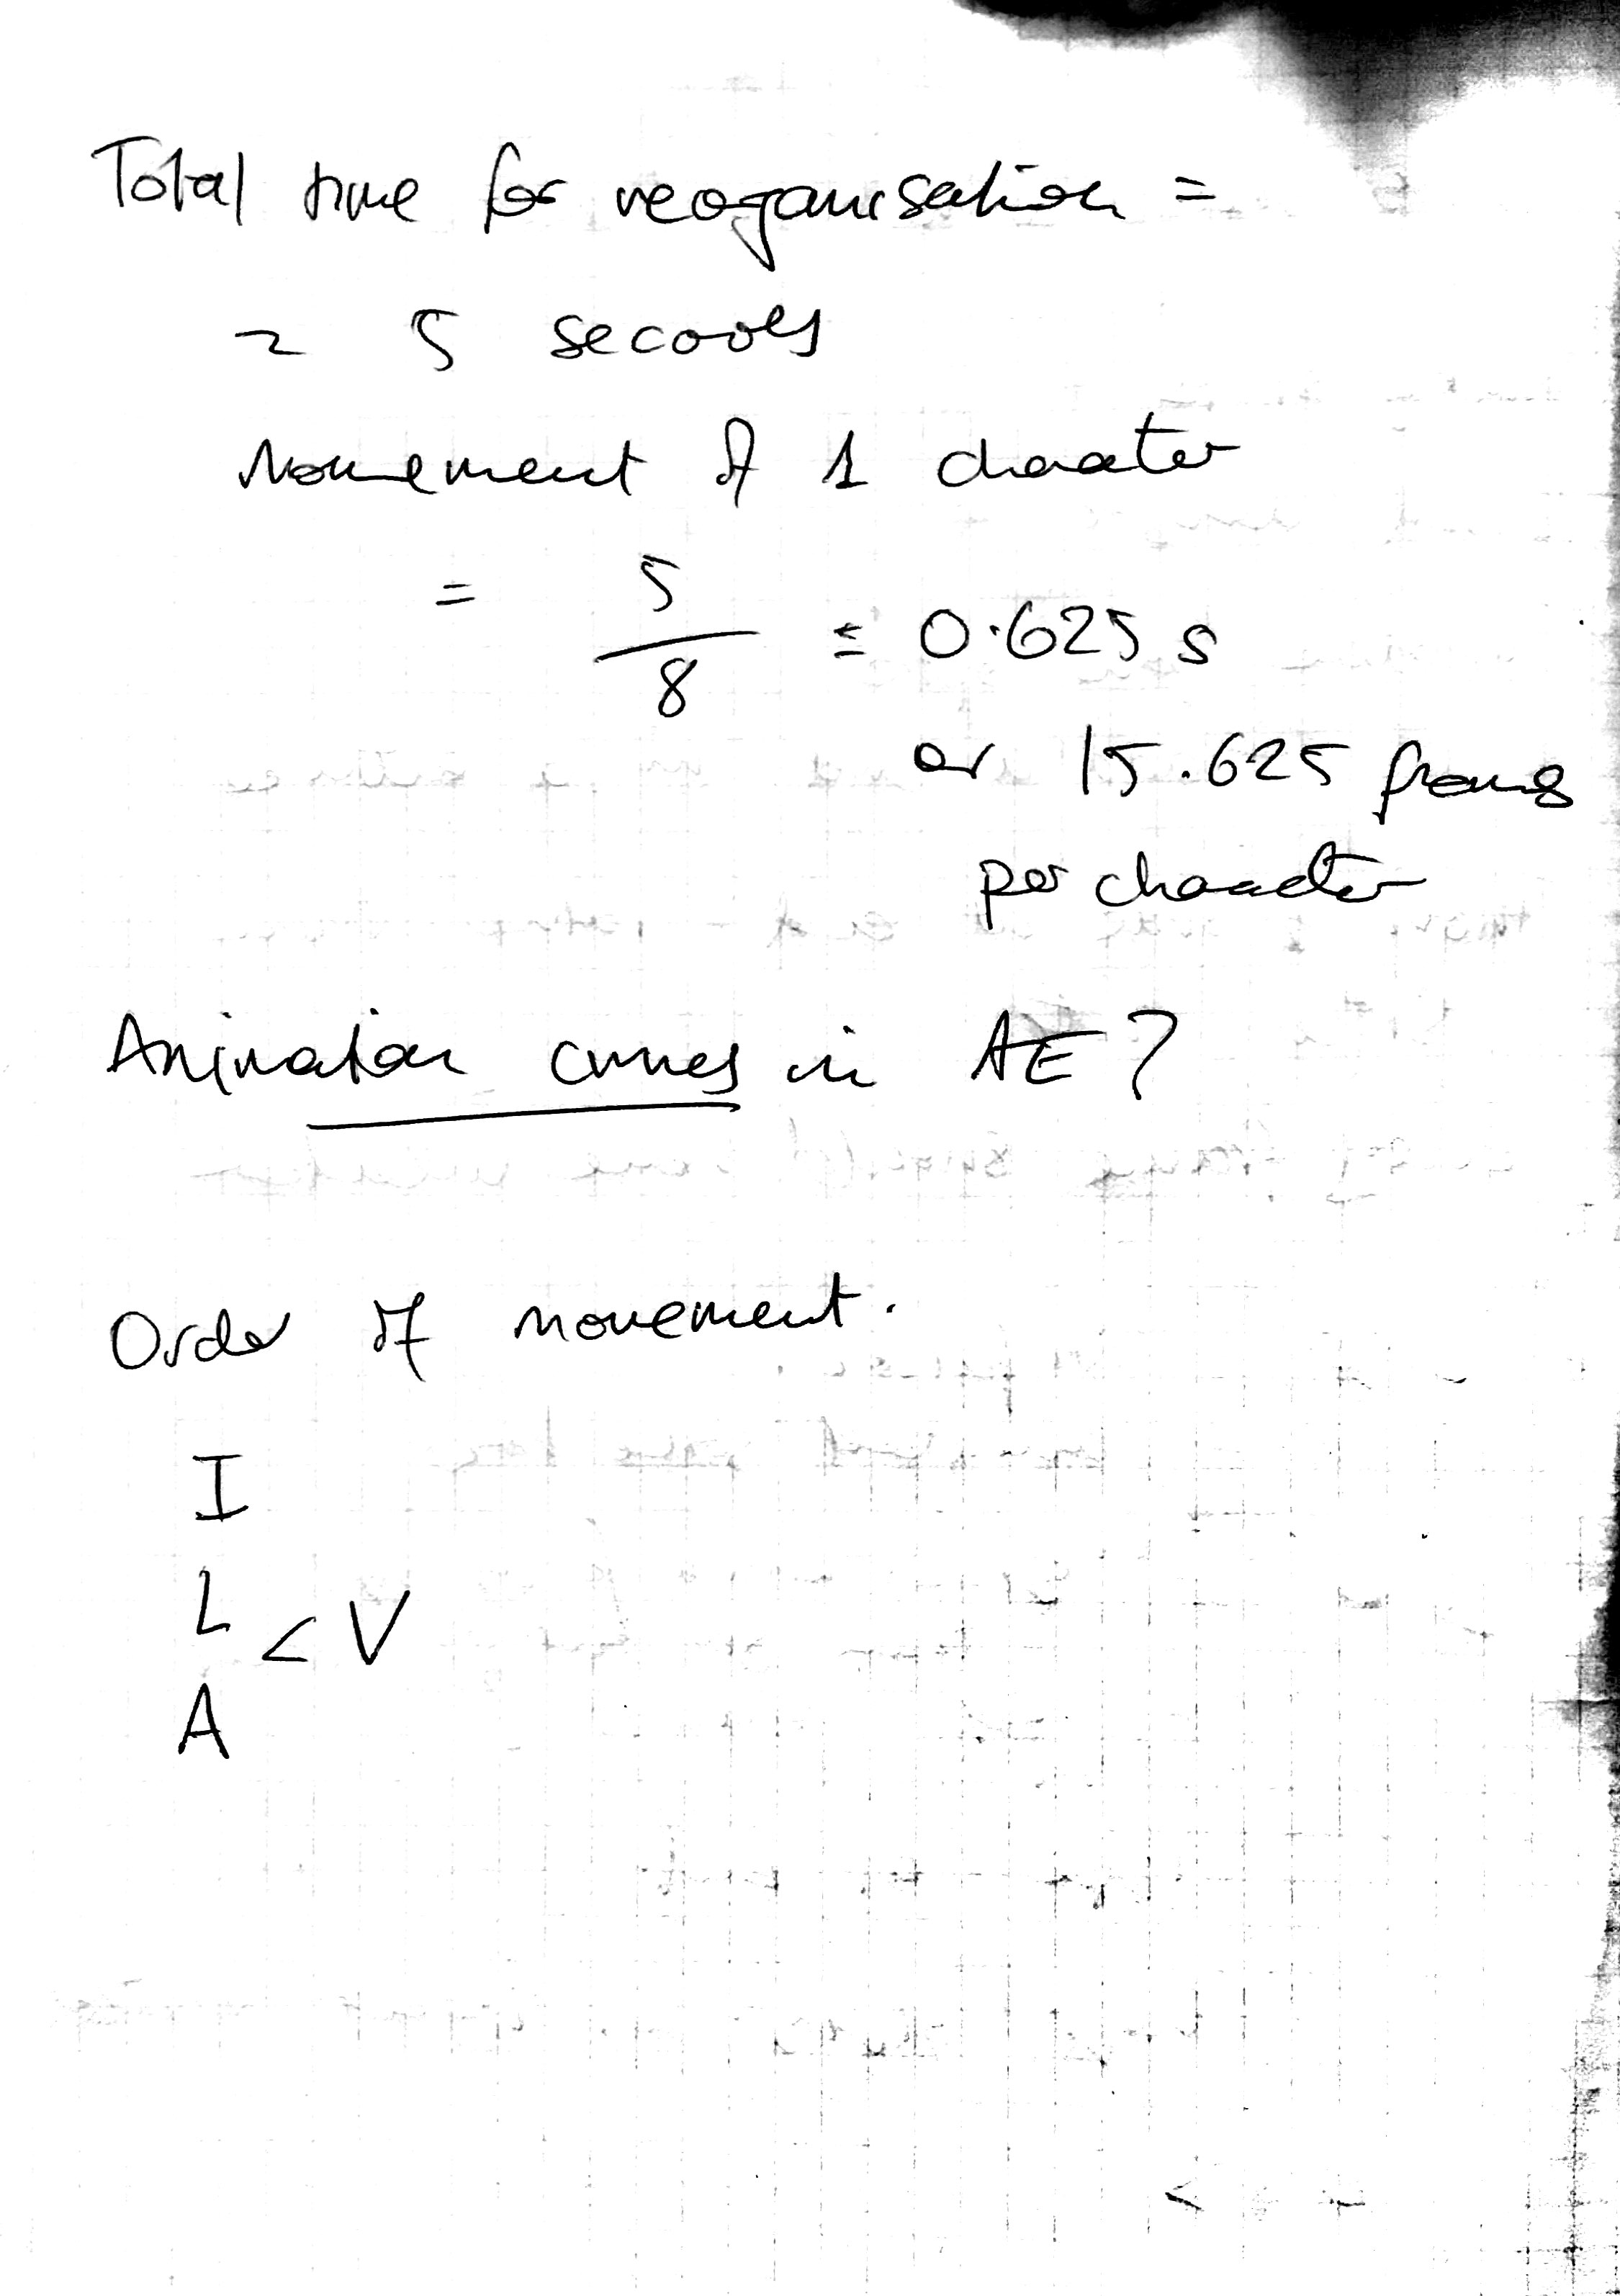 Total time for reorganisation =
~ 5 seconds
Movement of 1 character
= 5/8 = 0.625 s
or 15.625 frames
per character
Animation curves in AE?
Order of movement.
I
L < V
A